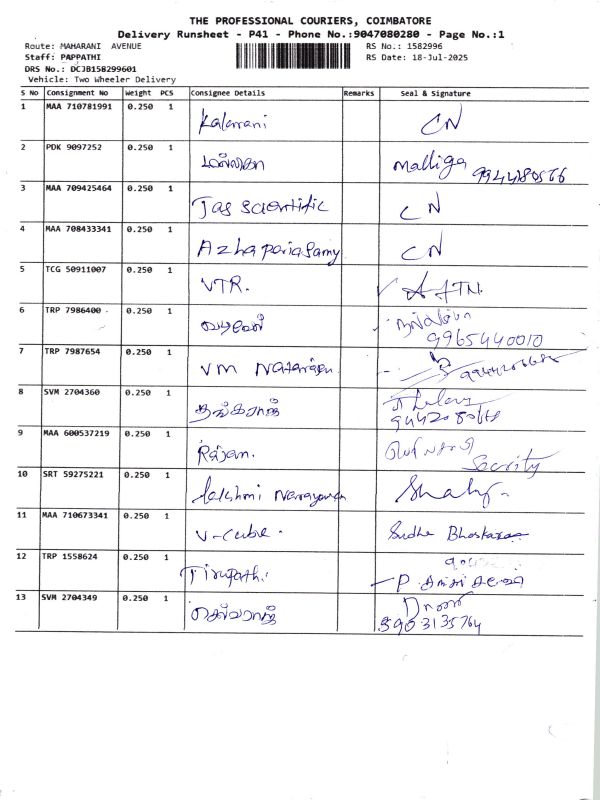 THE PROFESSIONAL COURIERS, COIMBATORE
Delivery Runsheet - P41 - Phone No.:9047080280 - Page No.:1
Route: MAHARANI AVENUE
RS No.: 1582996
Staff: PAPPATHI
RS Date: 18-Jul-2025
DRS No.: DCJB158299601
Vehicle: Two Wheeler Delivery
S No Consignment No Weight PCS Consignee Details Remarks Seal & Signature
1 MAA 710781991 0.250 1 Kalarani CN
2 PDK 9097252 0.250 1 Malliga
3 MAA 709425464 0.250 1 Jas Scientific CN
4 MAA 708433341 0.250 1 Azhapariasamy CN
5 TCG 50911007 0.250 1 VTR.
6 TRP 7986400 0.250 1 9965440010
7 TRP 7987654 0.250 1 VM Natarajan
8 SVM 2704360 0.250 1 தங்கராஜ்
9 MAA 600537219 0.250 1 Rajan. Secority
10 SRT 59275221 0.250 1 Lakshmi Narayanan
11 MAA 710673341 0.250 1 V-Cube. Sudha Bhaskaran
12 TRP 1558624 0.250 1 Tirupathi P
13 SVM 2704349 0.250 1 செல்வராஜ் 5903135764